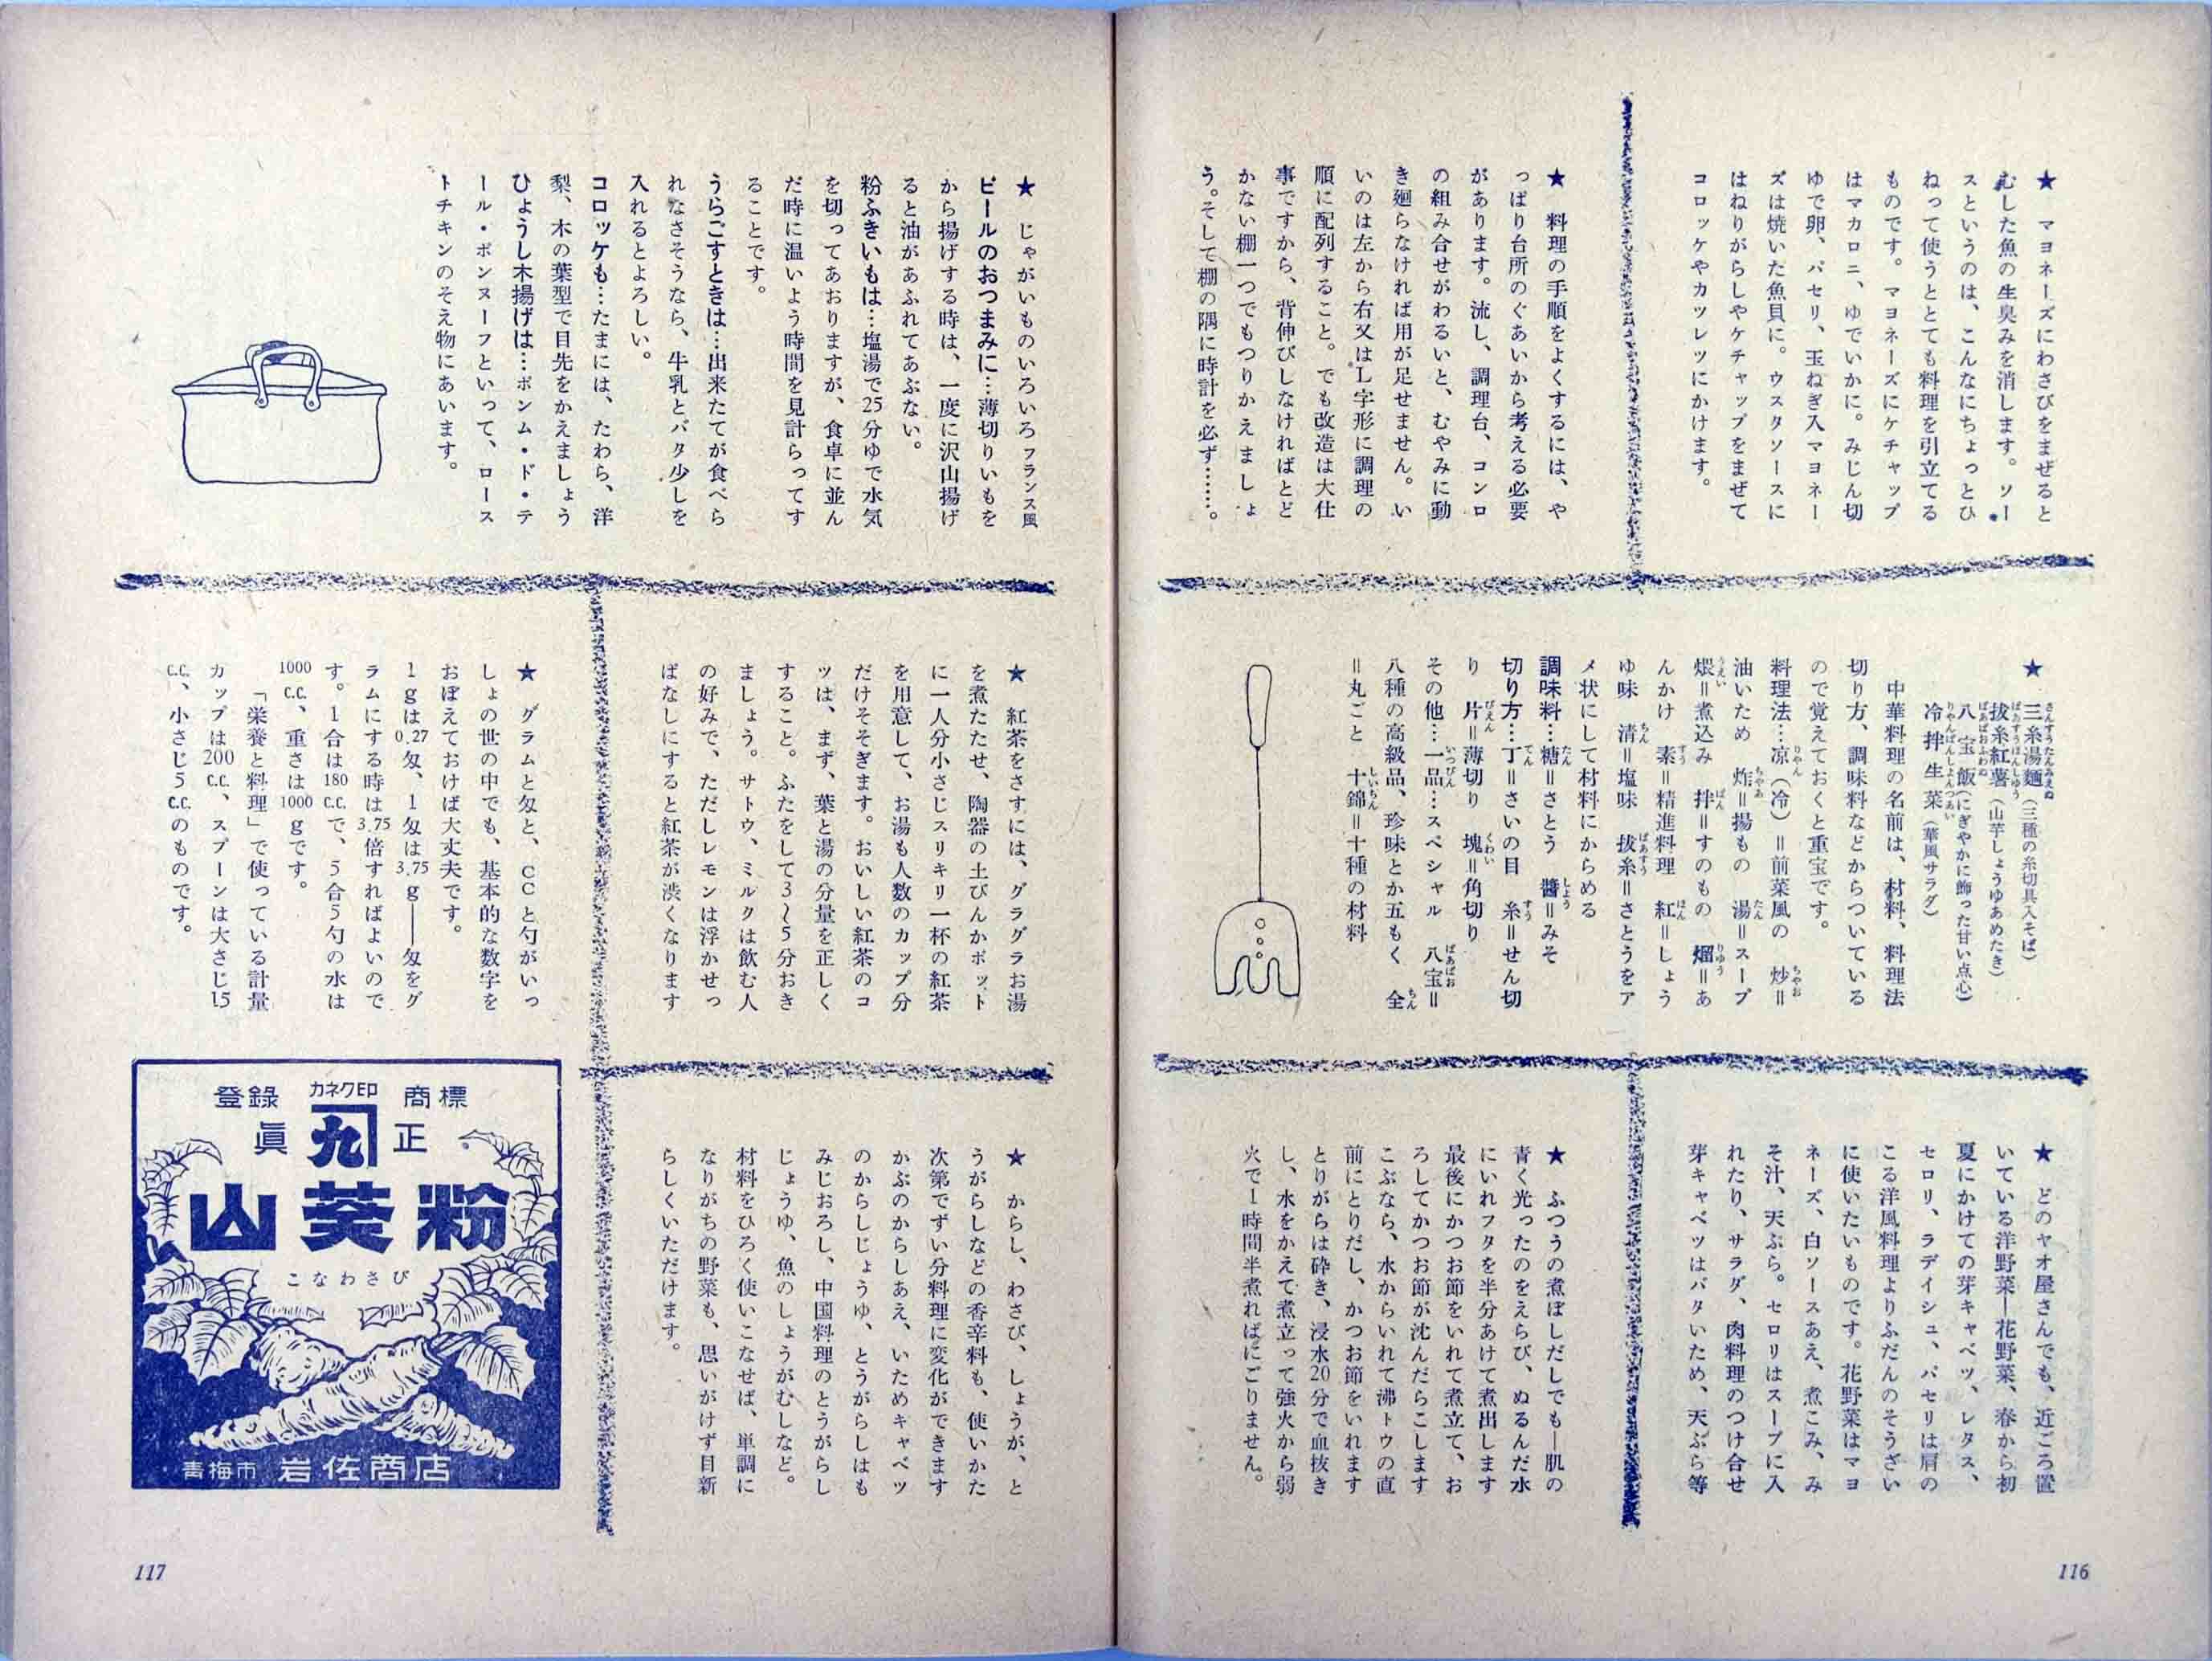 ★　マヨネーズにわさびをまぜると
むした魚の生臭みを消します。ソー
スというのは、こんなにちょっとひ
ねって使うととても料理を引立てる
ものです。マヨネーズにケチャップ
はマカロニ、ゆでいかに。みじん切
ゆで卵、パセリ、玉ねぎ入マヨネー
ズは焼いた魚貝に。ウスタソースに
はねりがらしやケチャップをまぜて
コロッケやカツレツにかけます。
★　料理の手順をよくするには、や
っぱり台所のぐあいから考える必要
があります。流し、調理台、コンロ
の組み合せがわるいと、むやみに動
き廻らなければ用が足せません。い
いのは左から右又はL字形に調理の
順に配列すること。でも改造は大仕
事ですから、背伸びしなければとど
かない棚一つでもつりかえましょ
う。そして棚の隅に時計を必ず……。
★　三糸湯麺（三種の糸切具入そば）
抜糸紅薯（山芋しょうゆあめたき）
八宝飯（にぎやかに飾った甘い点心）
冷拌生菜（華風サラダ）
中華料理の名前は、材料、料理法
切り方、調味料などからついている
ので覚えておくと重宝です。
料理法…凉（冷）＝前菜風の　炒＝
油いため　炸＝揚もの　湯＝スープ
煨＝煮込み　拌＝すのもの　熘＝あ
んかけ　素＝精進料理　紅＝しょう
ゆ味　清＝塩味　抜糸＝さとうをア
メ状にして材料にからめる
調味料…糖＝さとう　醬＝みそ
切り方…丁＝さいの目　糸＝せん切
り　片＝薄切り　塊＝角切り
その他…一品…スペシャル　八宝＝
八種の高級品、珍味とか五もく　全
＝丸ごと　十錦＝十種の材料
★　どのヤオ屋さんでも、近ごろ置
いている洋野菜―花野菜、春から初
夏にかけての芽キャベツ、レタス、
セロリ、ラデイシュ、パセリは肩の
こる洋風料理よりふだんのそうざい
に使いたいものです。花野菜はマヨ
ネーズ、白ソースあえ、煮こみ、み
そ汁、天ぷら。セロリはスープに入
れたり、サラダ、肉料理のつけ合せ
芽キャベツはバタいため、天ぷら等
★　ふつうの煮ぼしだしでも―肌の
青く光ったのをえらび、ぬるんだ水
にいれフタを半分あけて煮出します
最後にかつお節をいれて煮立て、お
ろしてかつお節が沈んだらこします
こぶなら、水からいれて沸トウの直
前にとりだし、かつお節をいれます
とりがらは砕き、浸水20分で血抜き
し、水をかえて煮立って強火から弱
火で1時間半煮ればにごりません。
116
★　じゃがいものいろいろフランス風
ビールのおつまみに…薄切りいもを
から揚げする時は、一度に沢山揚げ
ると油があふれてあぶない。
粉ふきいもは…塩湯で25分ゆで水気
を切ってあおりますが、食卓に並ん
だ時に温いよう時間を見計らってす
ることです。
うらごすときは…出来たてが食べら
れなさそうなら、牛乳とバタ少しを
入れるとよろしい。
コロッケも…たまには、たわら、洋
梨、木の葉型で目先をかえましょう
ひょうし木揚げは…ポンム・ド・テ
ール・ポンヌーフといって、ロース
トチキンのそえ物にあいます。
★　紅茶をさすには、グラグラお湯
を煮たたせ、陶器の土びんかポット
に一人分小さじスリキリ一杯の紅茶
を用意して、お湯も人数のカップ分
だけそそぎます。おいしい紅茶のコ
ツは、まず、葉と湯の分量を正しく
すること。ふたをして3〜5分おき
ましょう。サトウ、ミルクは飲む人
の好みで、ただしレモンは浮かせっ
ぱなしにすると紅茶が渋くなります
★　グラムと匁と、CCと勺がいっ
しょの世の中でも、基本的な数字を
おぼえておけば大丈夫です。
1gは0.27匁、1匁は3.75g――匁をグ
ラムにする時は3.75倍すればよいので
す。1合は180c.c.で、5合5勺の水は
1000c.c.、重さは1000gです。
「栄養と料理」で使っている計量
カップは200c.c.、スプーンは大さじ15
c.c.、小さじ5c.c.のものです。
★　からし、わさび、しょうが、と
うがらしなどの香辛料も、使いかた
次第でずい分料理に変化ができます
かぶのからしあえ、いためキャベツ
のからしじょうゆ、とうがらしはも
みじおろし、中国料理のとうがらし
じょうゆ、魚のしょうがむしなど。
材料をひろく使いこなせば、単調に
なりがちの野菜も、思いがけず目新
らしくいただけます。
登錄 カネク印 商標
眞 九 正
山葵粉
こなわさび
青梅市 岩佐商店
117